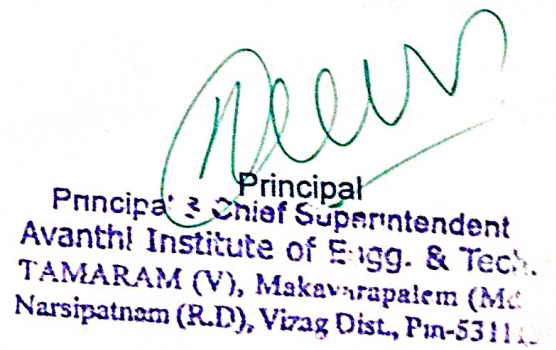 Principal
Principal & Chief Superintendent
Avanthi Institute of Engg. & Tech.
TAMARAM (V), Makavarapalem (Md
Narsipatnam (R.D), Vizag Dist., Pin-5311